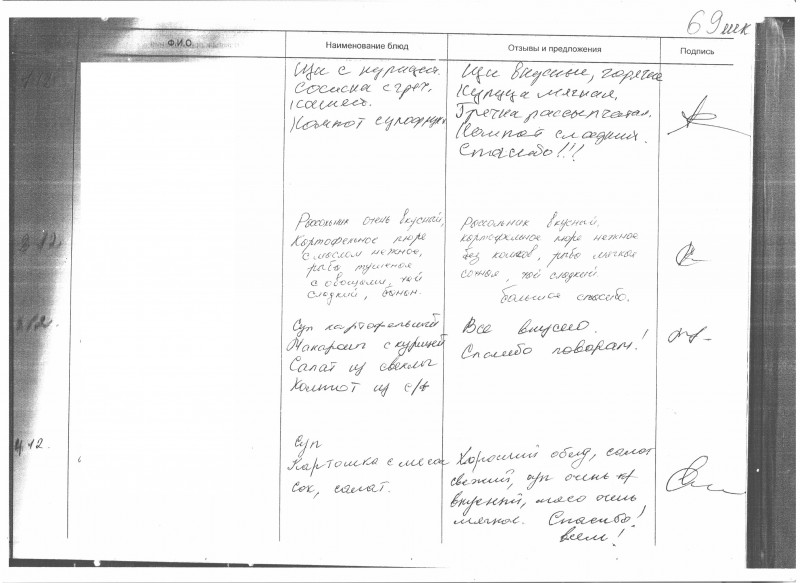 69 шк
Ф.И.О. Наименование блюд Отзывы и предложения Подпись
Щи с курицей.
Сосиска с греч.
кашей.
Компот сухофрукт
Щи вкусные, горячие
Курица мягкая.
Гречка рассыпчатая.
Компот сладкий.
Спасибо!!!
Рассольник очень вкусный,
Картофельное пюре
с маслом нежное,
рыба тушеная
с овощами, чай
сладкий, банан.
Рассольник вкусный,
картофельное пюре нежное
без комков, рыба мягкая
сочная, чай сладкий
большое спасибо.
.12.
Суп картофельный
Макароны с курицей
Салат из свеклы
Компот из с/ф
Все вкусно.
Спасибо поварам!
4.12.
Суп
Картошка с мясом
Сок, салат.
Хороший обед, салат
свежий, суп очень
вкусный, мясо очень
мягкое. Спасибо!
всем!